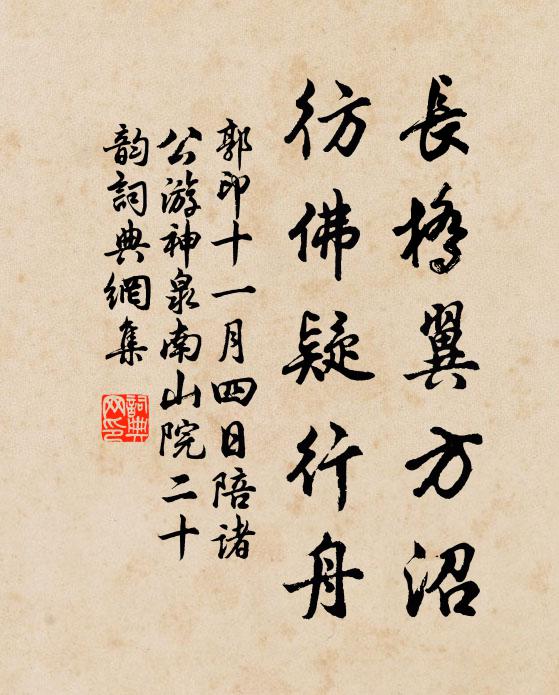 長橋翼方沼
彷佛疑行舟
郭印十一月四日陪諸
公游神泉南山院二十
韵詞典網集
詞典
网印